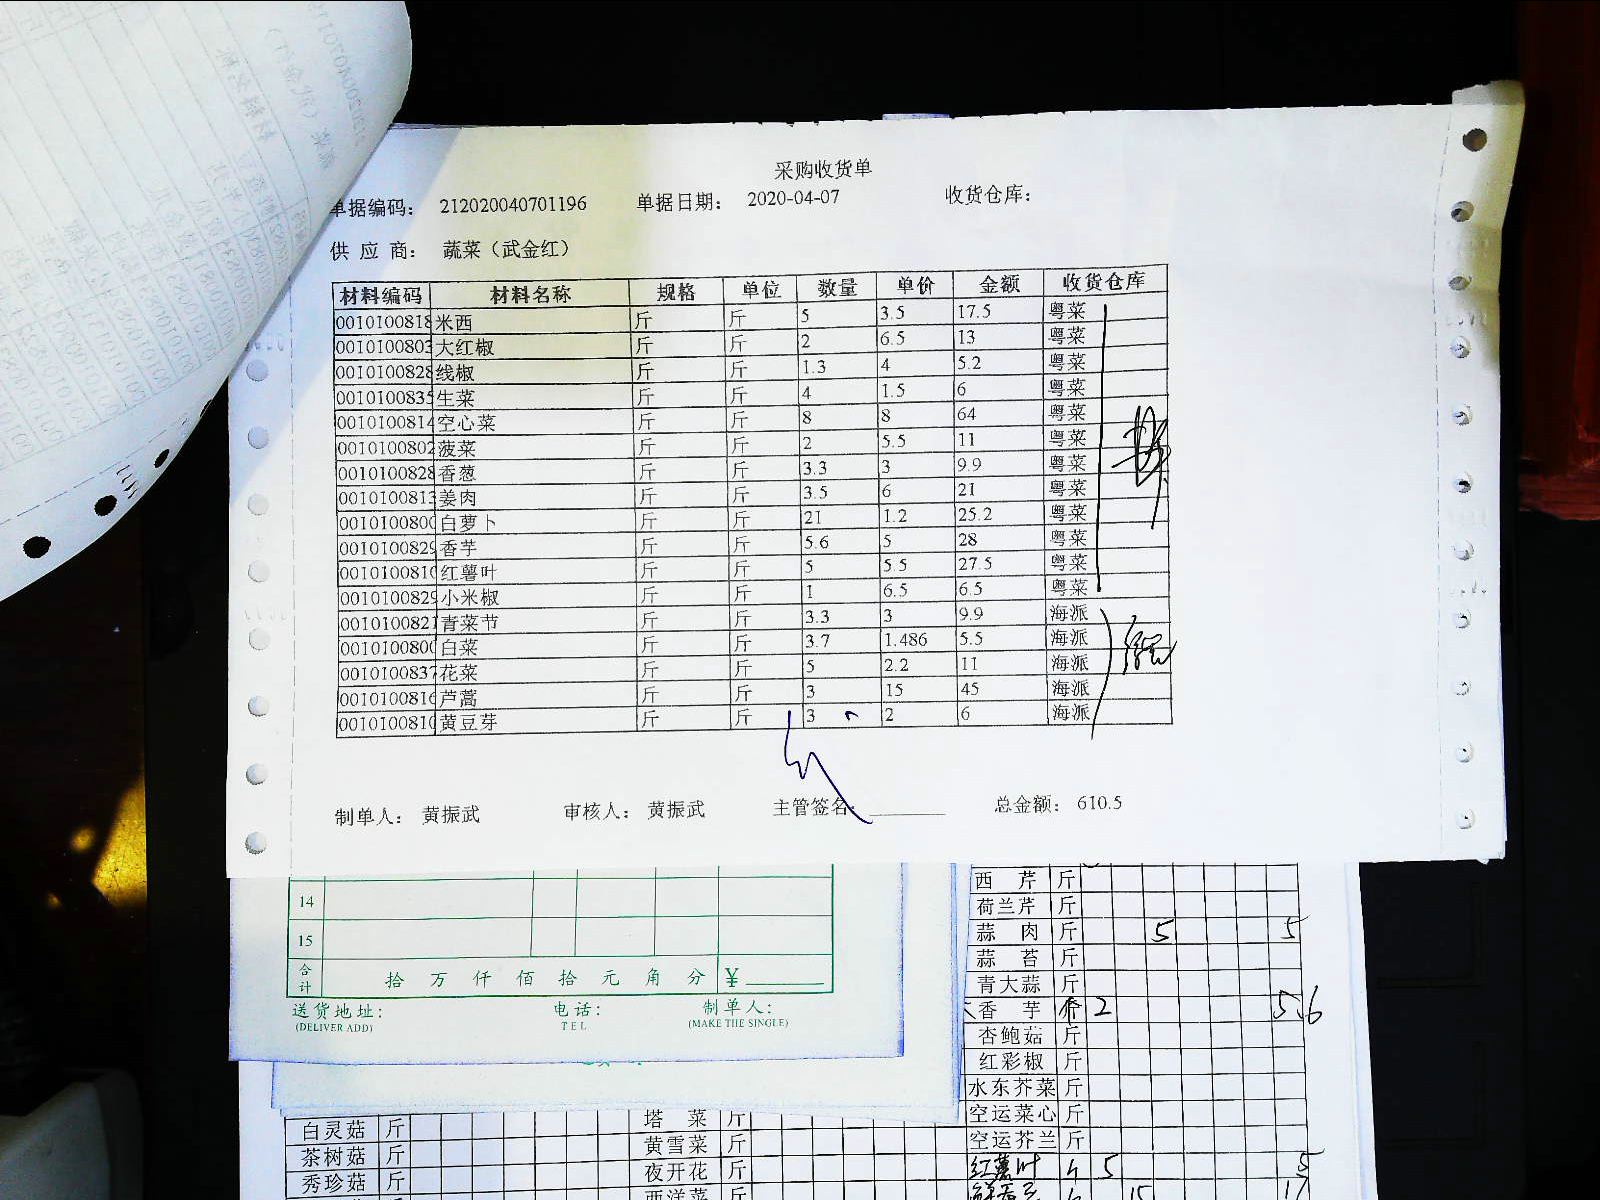 采购收货单
单据编码： 212020040701196 单据日期： 2020-04-07 收货仓库：
供 应 商： 蔬菜（武金红）
材料编码 材料名称 规格 单位 数量 单价 金额 收货仓库
0010100818 米西 斤 斤 5 3.5 17.5 粤菜
0010100803 大红椒 斤 斤 2 6.5 13 粤菜
0010100828 线椒 斤 斤 1.3 4 5.2 粤菜
0010100835 生菜 斤 斤 4 1.5 6 粤菜
0010100814 空心菜 斤 斤 8 8 64 粤菜
0010100802 菠菜 斤 斤 2 5.5 11 粤菜
0010100828 香葱 斤 斤 3.3 3 9.9 粤菜
0010100813 姜肉 斤 斤 3.5 6 21 粤菜
0010100800 白萝卜 斤 斤 21 1.2 25.2 粤菜
0010100829 香芋 斤 斤 5.6 5 28 粤菜
0010100810 红薯叶 斤 斤 5 5.5 27.5 粤菜
0010100829 小米椒 斤 斤 1 6.5 6.5 粤菜
0010100821 青菜节 斤 斤 3.3 3 9.9 海派
0010100800 白菜 斤 斤 3.7 1.486 5.5 海派
0010100837 花菜 斤 斤 5 2.2 11 海派
0010100816 芦蒿 斤 斤 3 15 45 海派
0010100810 黄豆芽 斤 斤 3 2 6 海派
制单人： 黄振武 审核人： 黄振武 主管签名： 总金额： 610.5
14
15
合计 拾 万 仟 佰 拾 元 角 分 ¥
送货地址： 电话： 制单人：
(DELIVER ADD) TEL (MAKE THE SINGLE)
西 芹 斤
荷兰芹 斤
蒜 肉 斤 5 5
蒜 苔 斤
青大蒜 斤
香 芋 斤 2 5.6
杏鲍菇 斤
红彩椒 斤
水东芥菜 斤
空运菜心 斤
空运芥兰 斤
红薯叶 斤 5 5
15 17
塔 菜 斤
黄雪菜 斤
夜开花 斤
西洋菜 斤
白灵菇 斤
茶树菇 斤
秀珍菇 斤